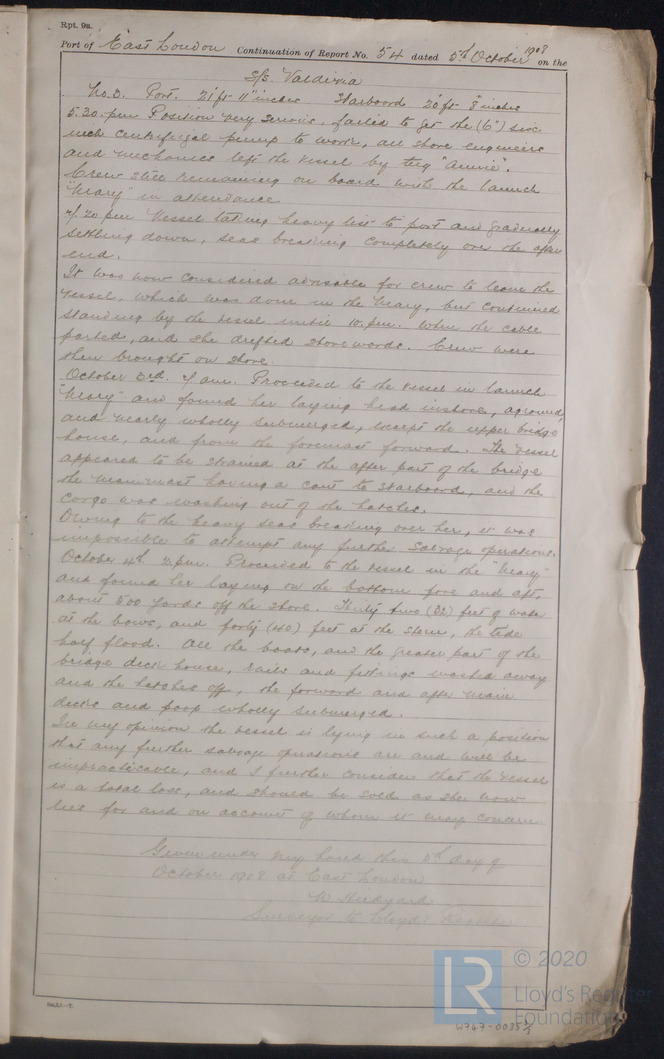 Rpt. 9a.
Port of East London Continuation of Report No. 54 dated 5th October 1908 on the
S/S. Valdivia
No. 3. Port. 21 ft 11 inches Starboard 20 ft 8 inches
5.30. pm Position very serious, failed to get the (6") six
inch centrifugal pump to work, all shore engineers
and mechanics left the vessel by tug "Annie".
Crew still remaining on board with the launch
"Mary" in attendance
7.20 pm Vessel taking heavy list to port and gradually
settling down, seas breaking completely over the after
end.
It was now considered advisable for crew to leave the
vessel, which was done in the Mary, but continued
standing by the vessel until 10. pm. when the cable
parted, and she drifted shorewards. Crew were
then brought on shore.
October 3rd. 9 am. Proceeded to the vessel in launch
"Mary" and found her laying head inshore, aground,
and nearly wholly submerged, except the upper bridge
house, and from the foremast forward. The vessel
appeared to be strained at the after part of the bridge
the mainmast having a cant to starboard, and the
cargo was washing out of the hatches.
Owing to the heavy seas breaking over her, it was
impossible to attempt any further salvage operations.
October 4th. 2. pm. Proceeded to the vessel in the "Mary"
and found her laying on the bottom fore and aft,
about 500 yards off the shore. Thirty two (32) feet of water
at the bows, and forty (40) feet at the stern, the tide
half flood. All the boats, and the greater part of the
bridge deck house, rails and fittings washed away
and the hatches off, the forward and after main
decks and poop wholly submerged.
In my opinion the vessel is lying in such a position
that any further salvage operations are and will be
impracticable, and I further consider that the vessel
is a total loss, and should be sold as she now
lies for and on account of whom it may concern
Given under my hand this 5th day of
October 1908 at East London
Surveyor to Lloyds Register
LR © 2020
Lloyd's Register
Foundation
W747-0035 2/2